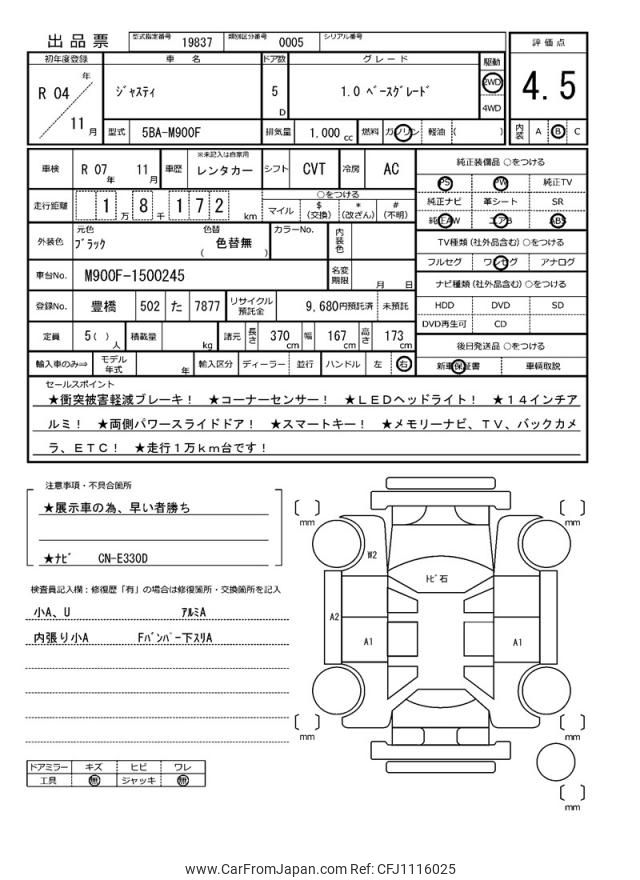 出品票 型式指定番号 19837 類別区分番号 0005 シリアル番号
評価点
初年度登録 車名 ドア数 グレード 駆動
R 04 年 11 月
ジャスティ 5 D 1.0 ベースグレード 2WD 4WD
4.5
型式 5BA-M900F 排気量 1.000 cc 燃料 ガソリン 軽油 ( )
内装 A B C
車検 R 07 年 11 月 車歴 ※未記入は自家用 レンタカー シフト CVT 冷房 AC
純正装備品 ○をつける
PS PW 純正TV
純正ナビ 革シート SR
純正AW エアB ABS
走行距離 1 万 8 千 1 7 2 km
○をつける
マイル $ (交換) * (改ざん) # (不明)
外装色 元色 ブラック 色替 色替無 ( ) カラーNo. 内装色
TV種類 (社外品含む) ○をつける
フルセグ ワンセグ アナログ
車台No. M900F-1500245 名変期限 月 日
ナビ種類 (社外品含む) ○をつける
HDD DVD SD
DVD再生可 CD
登録No. 豊橋 502 た 7877 リサイクル預託金 9,680円預託済 未預託
定員 5 ( ) 人 積載量 kg 諸元 長さ 370 cm 幅 167 cm 高さ 173 cm
後日発送品 ○をつける
新車保証書 車輌取説
輸入車のみ⇒ モデル年式 年 輸入区分 ディーラー 並行 ハンドル 左 右
セールスポイント
★衝突被害軽減ブレーキ! ★コーナーセンサー! ★ＬＥＤヘッドライト! ★１４インチア
ルミ! ★両側パワースライドドア! ★スマートキー! ★メモリーナビ、ＴＶ、バックカメ
ラ、ＥＴＣ! ★走行１万ｋｍ台です!
注意事項・不具合箇所
★展示車の為、早い者勝ち
★ナビ CN-E330D
検査員記入欄：修復歴「有」の場合は修復箇所・交換箇所を記入
小A、U アルミA
内張り小A Fバンパー下スリA
ドアミラー キズ ヒビ ワレ
工具 無 ジャッキ 無
mm
mm
W2
トビ石
A2
A1
A1
mm
mm
mm
www.CarFromJapan.com Ref: CFJ1116025